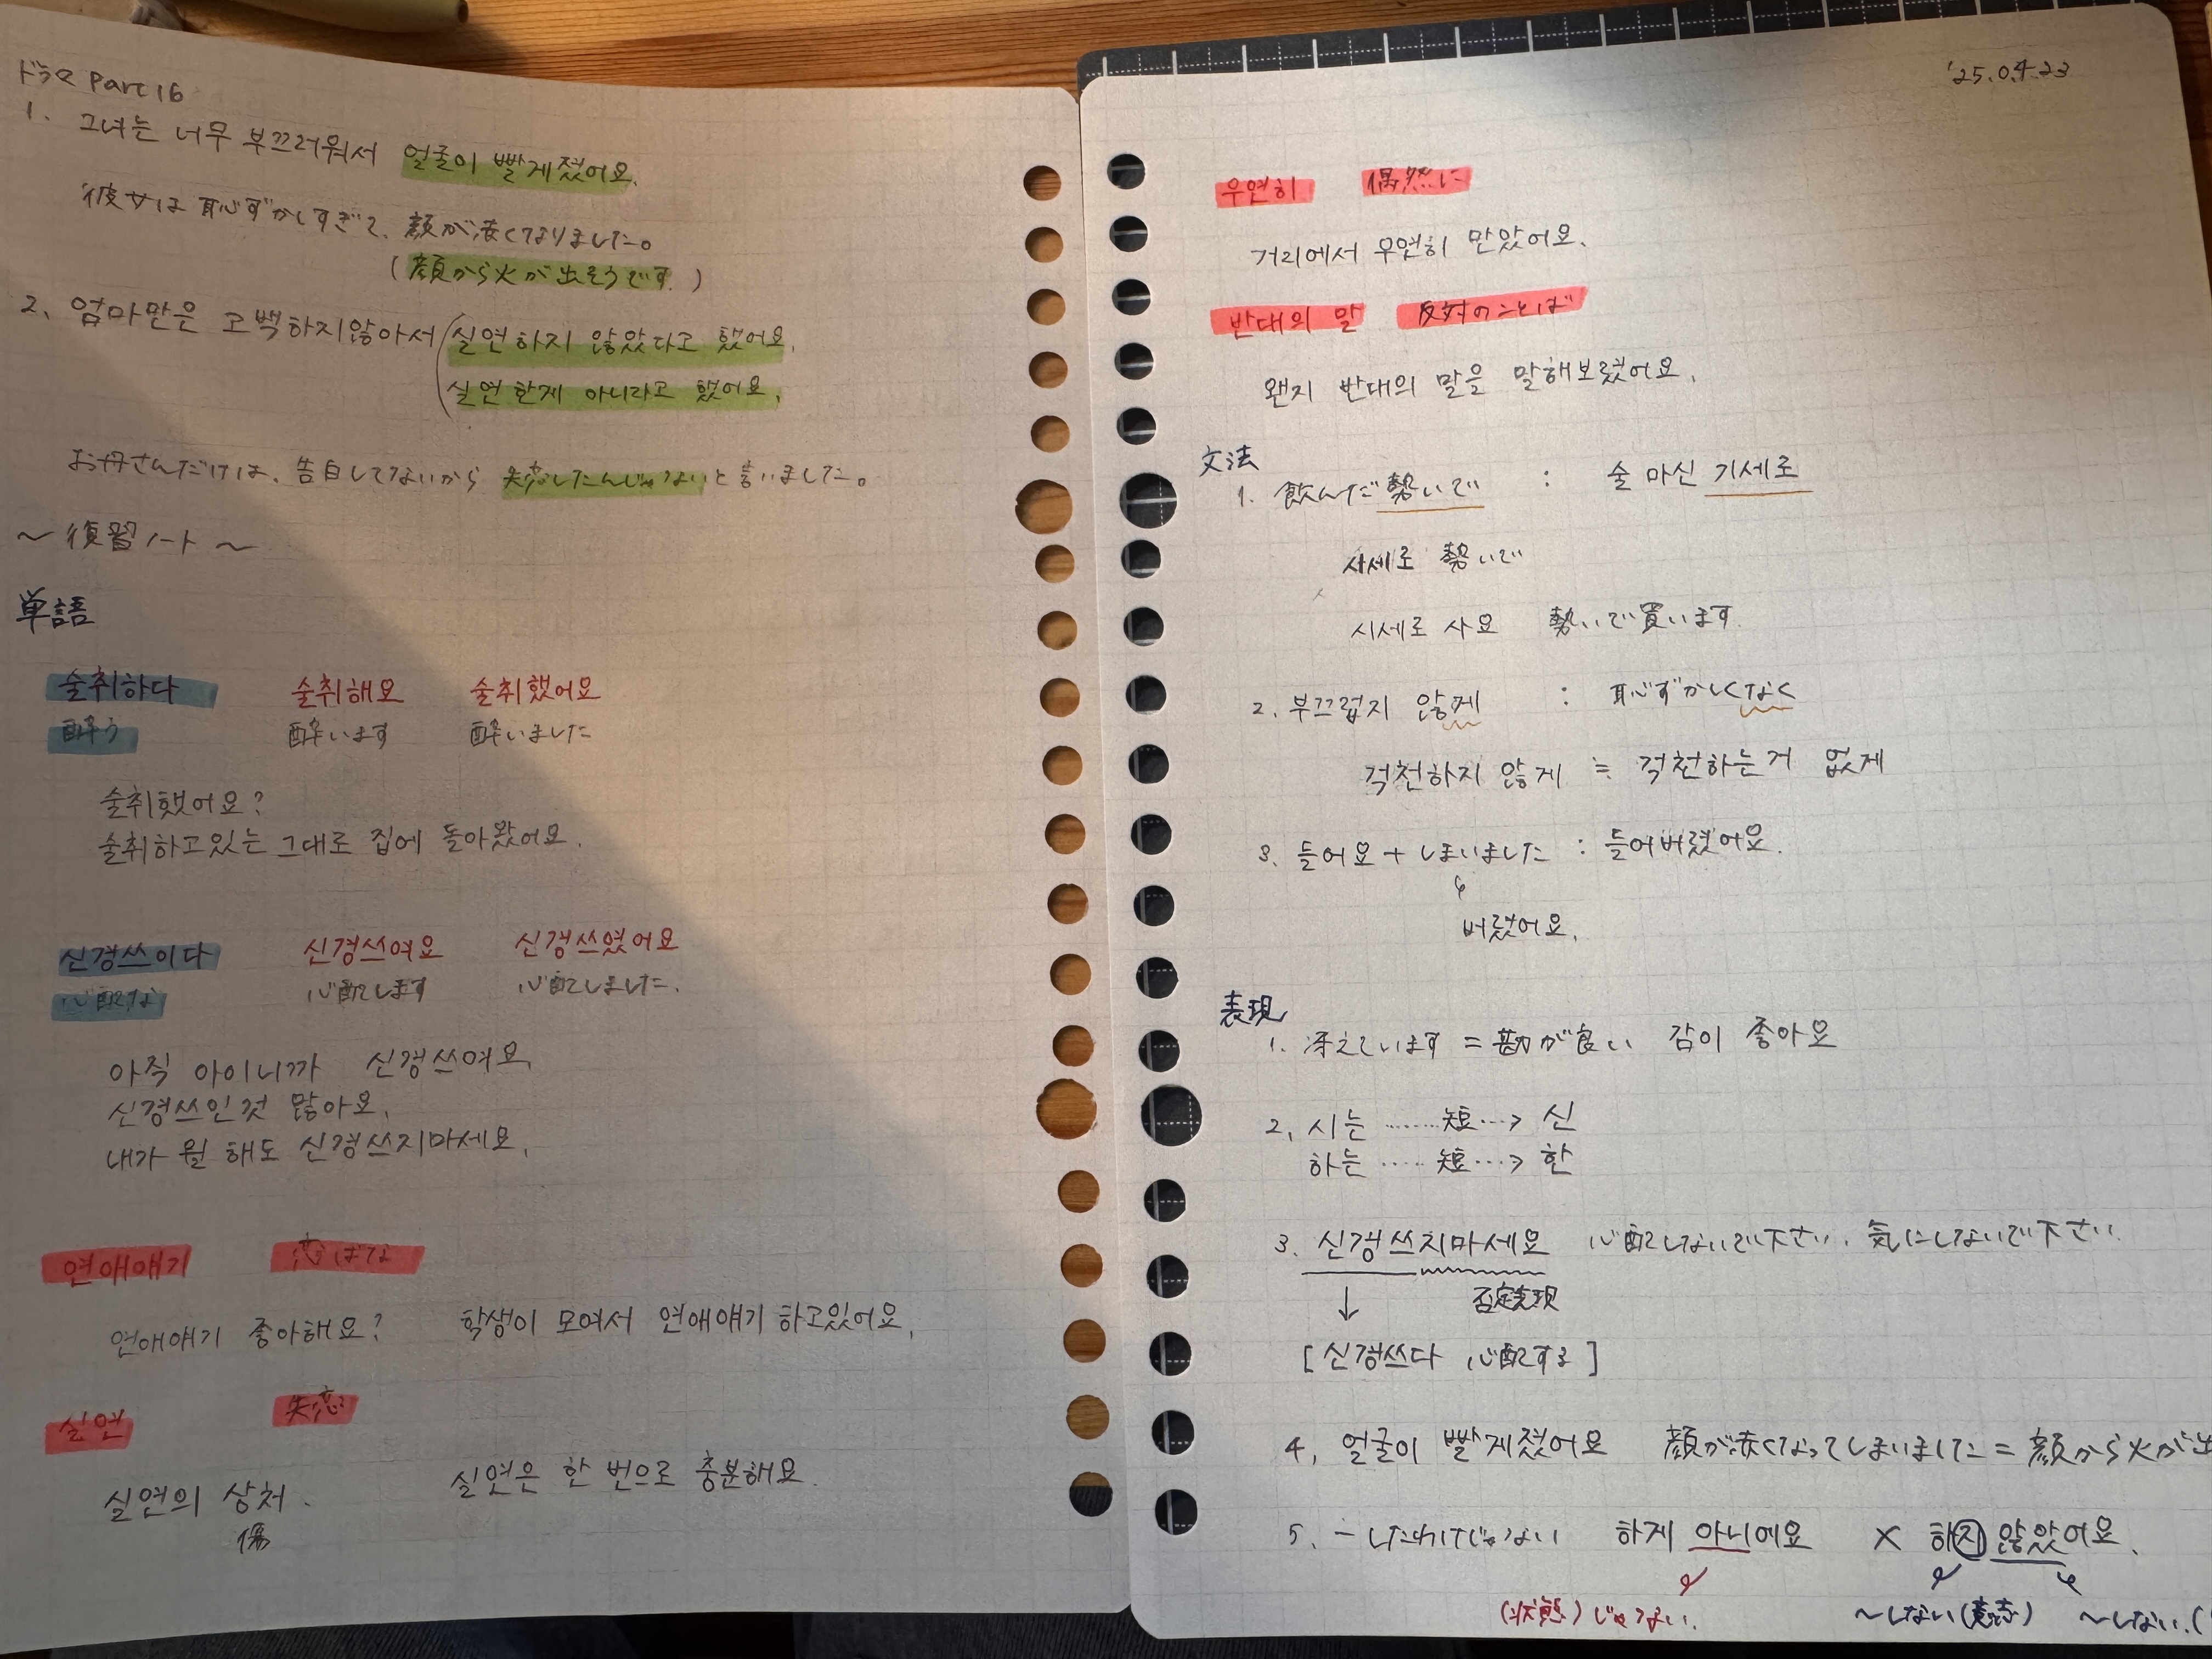 ドラマ Part16
1. 그녀는 너무 부끄러워서 얼굴이 빨게졌어요.
彼女は恥ずかしすぎて、顔が赤くなりました。
(顔から火が出そうです。)
2. 엄마만은 고백하지않아서 실연하지 않았다고 했어요.
실연한게 아니라고 했어요.
お母さんだけは、告白してないから失恋したんじゃないと言いました。
～復習ノート～
単語
술취하다 술취해요 술취했어요
酔う 酔います 酔いました
술취했어요?
술취하고있는 그대로 집에 돌아왔어요.
신경쓰이다 신경쓰여요 신경쓰였어요
心配な 心配します 心配しました.
아직 아이니까 신경쓰여요.
신경쓰인것 많아요.
내가 뭘 해도 신경쓰지마세요.
연애얘기 恋ばな
연애얘기 좋아해요? 학생이 모여서 연애얘기 하고있어요.
실연 失恋
실연의 상처. 실연은 한 번으로 충분해요.
傷
'25.04.23
우연히 偶然に
거리에서 우연히 만았어요.
반대의 말 反対のことば
왠지 반대의 말을 말해보렸어요.
文法
1. 飲んだ勢いで : 술 마신 기세로
사세로 勢いで
시세로 사요 勢いで買います.
2. 부끄럽지 않게 : 恥ずかしくなく
걱천하지 않게 ≒ 걱천하는거 없게
3. 들어요 + しまいました : 들어버렸어요.
버렸어요.
表現
1. 冴えています = 勘が良い 감이 좋아요
2. 시는 ……短…→ 신
하는 ……短…→ 한
3. 신경쓰지마세요 心配しないで下さい. 気にしないで下さい.
↓ 否定表現
[신경쓰다 心配する]
4. 얼굴이 빨게졌어요 顔が赤くなってしまいました = 顔から火が出
5. ーしたわけじゃない 하게 아니에요 × 하지 않았어요.
(状態)じゃない. ～しない(意志) ～しない.(